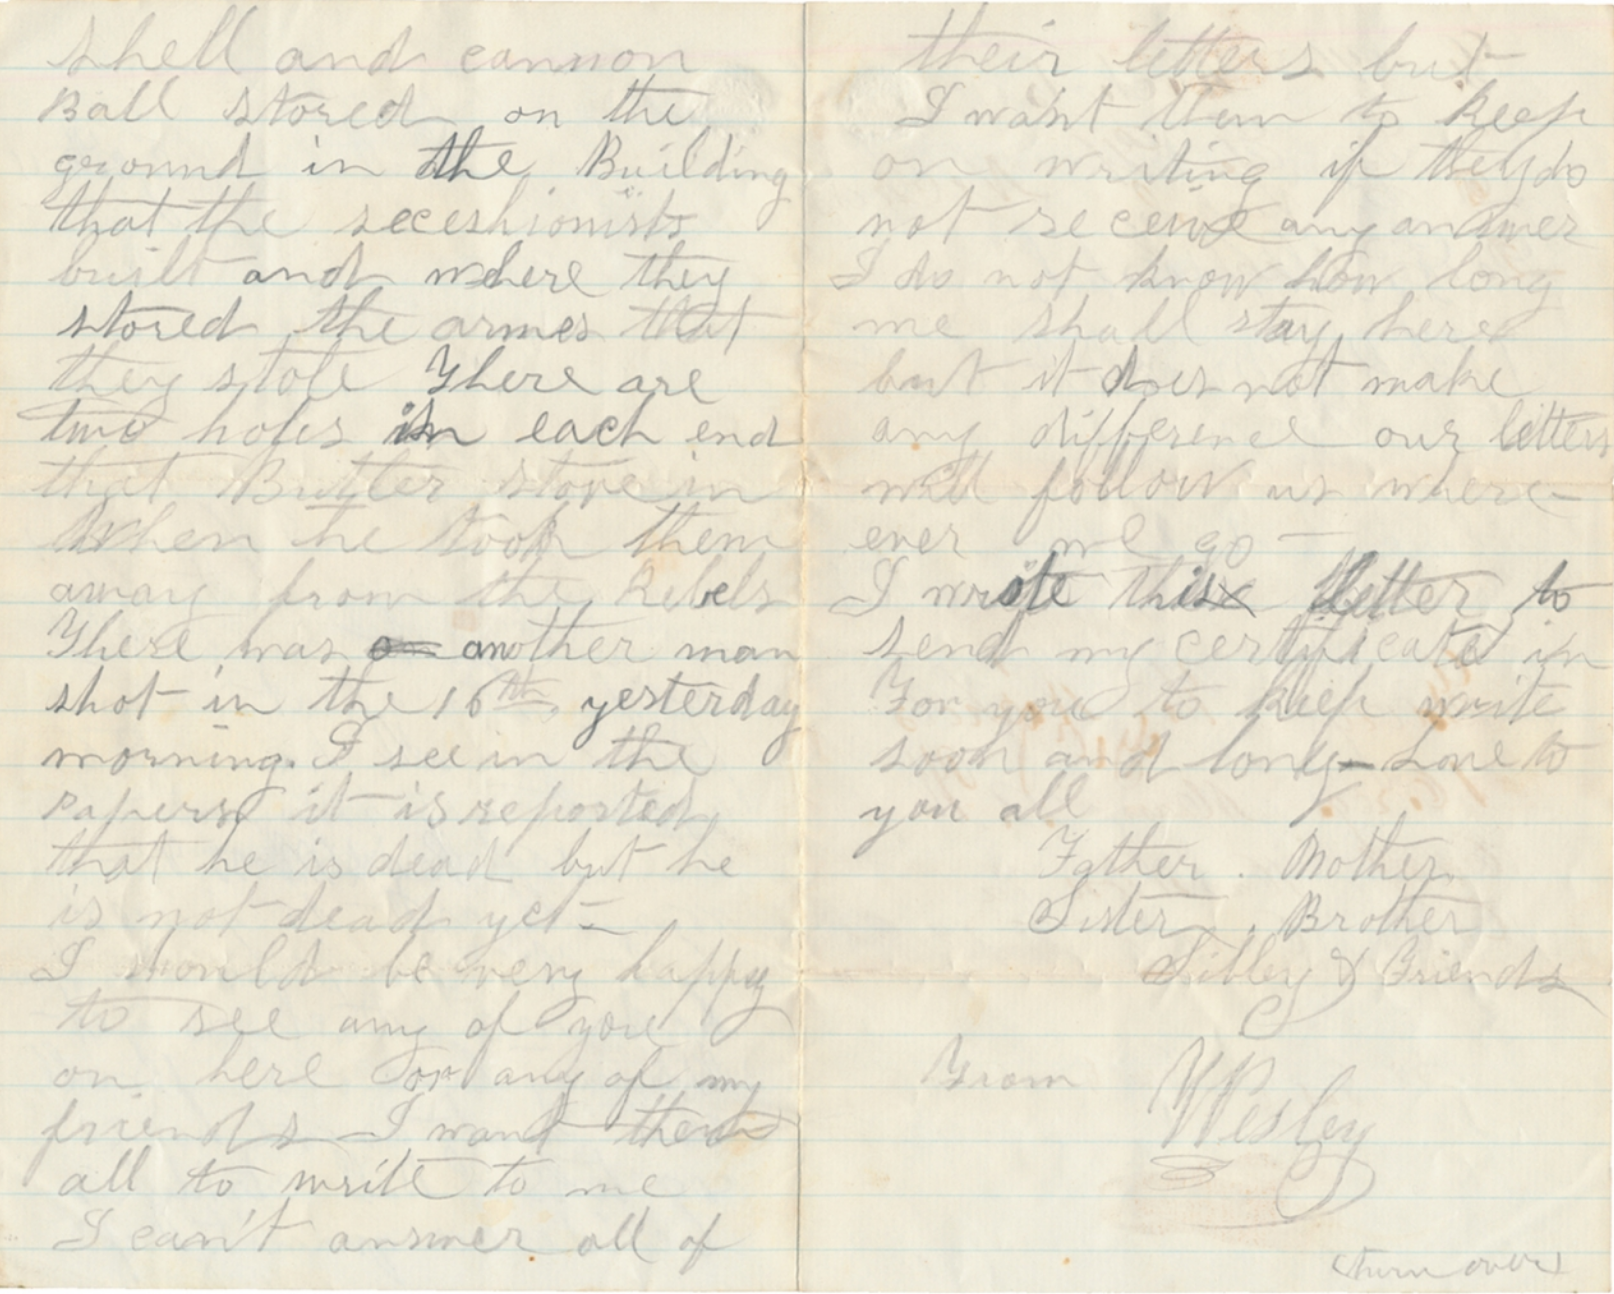 shell and cannon
Ball stored on the
ground in the Building
that the seceshionists
built and where they
stored the armes that
they stole There are
two holes in each end
that Butler stove in
When he took them
away from the Rebels
There was another man
shot in the 16th yesterday
morning. I see in the
papers it is reported
that he is dead but he
is not dead yet -
I would be very happy
to see any of you
on here or any of my
friends I want them
all to write to me
I can't answer all of
their letters but
I want them to keep
on writing if they do
not receive any answer
I do not know how long
we shall stay here
but it does not make
any difference our letters
will follow us where-
ever we go -
I wrote this letter to
send my certificate in
For you to keep write
soon and long - Love to
you all
Father. Mother
Sister, Brother
Libbey & Friends
From Wesley
(turn over)